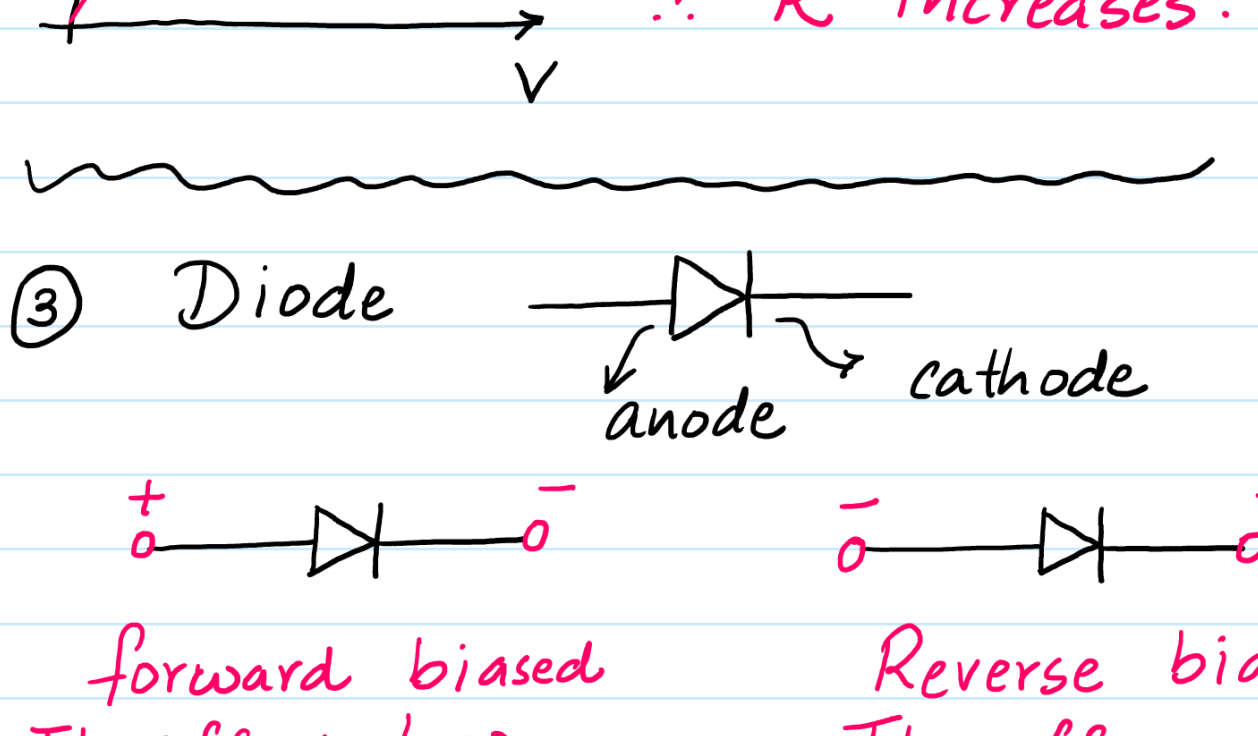 ∴ R increases.
V
③ Diode
cathode
anode
+ −
−
forward biased
Reverse